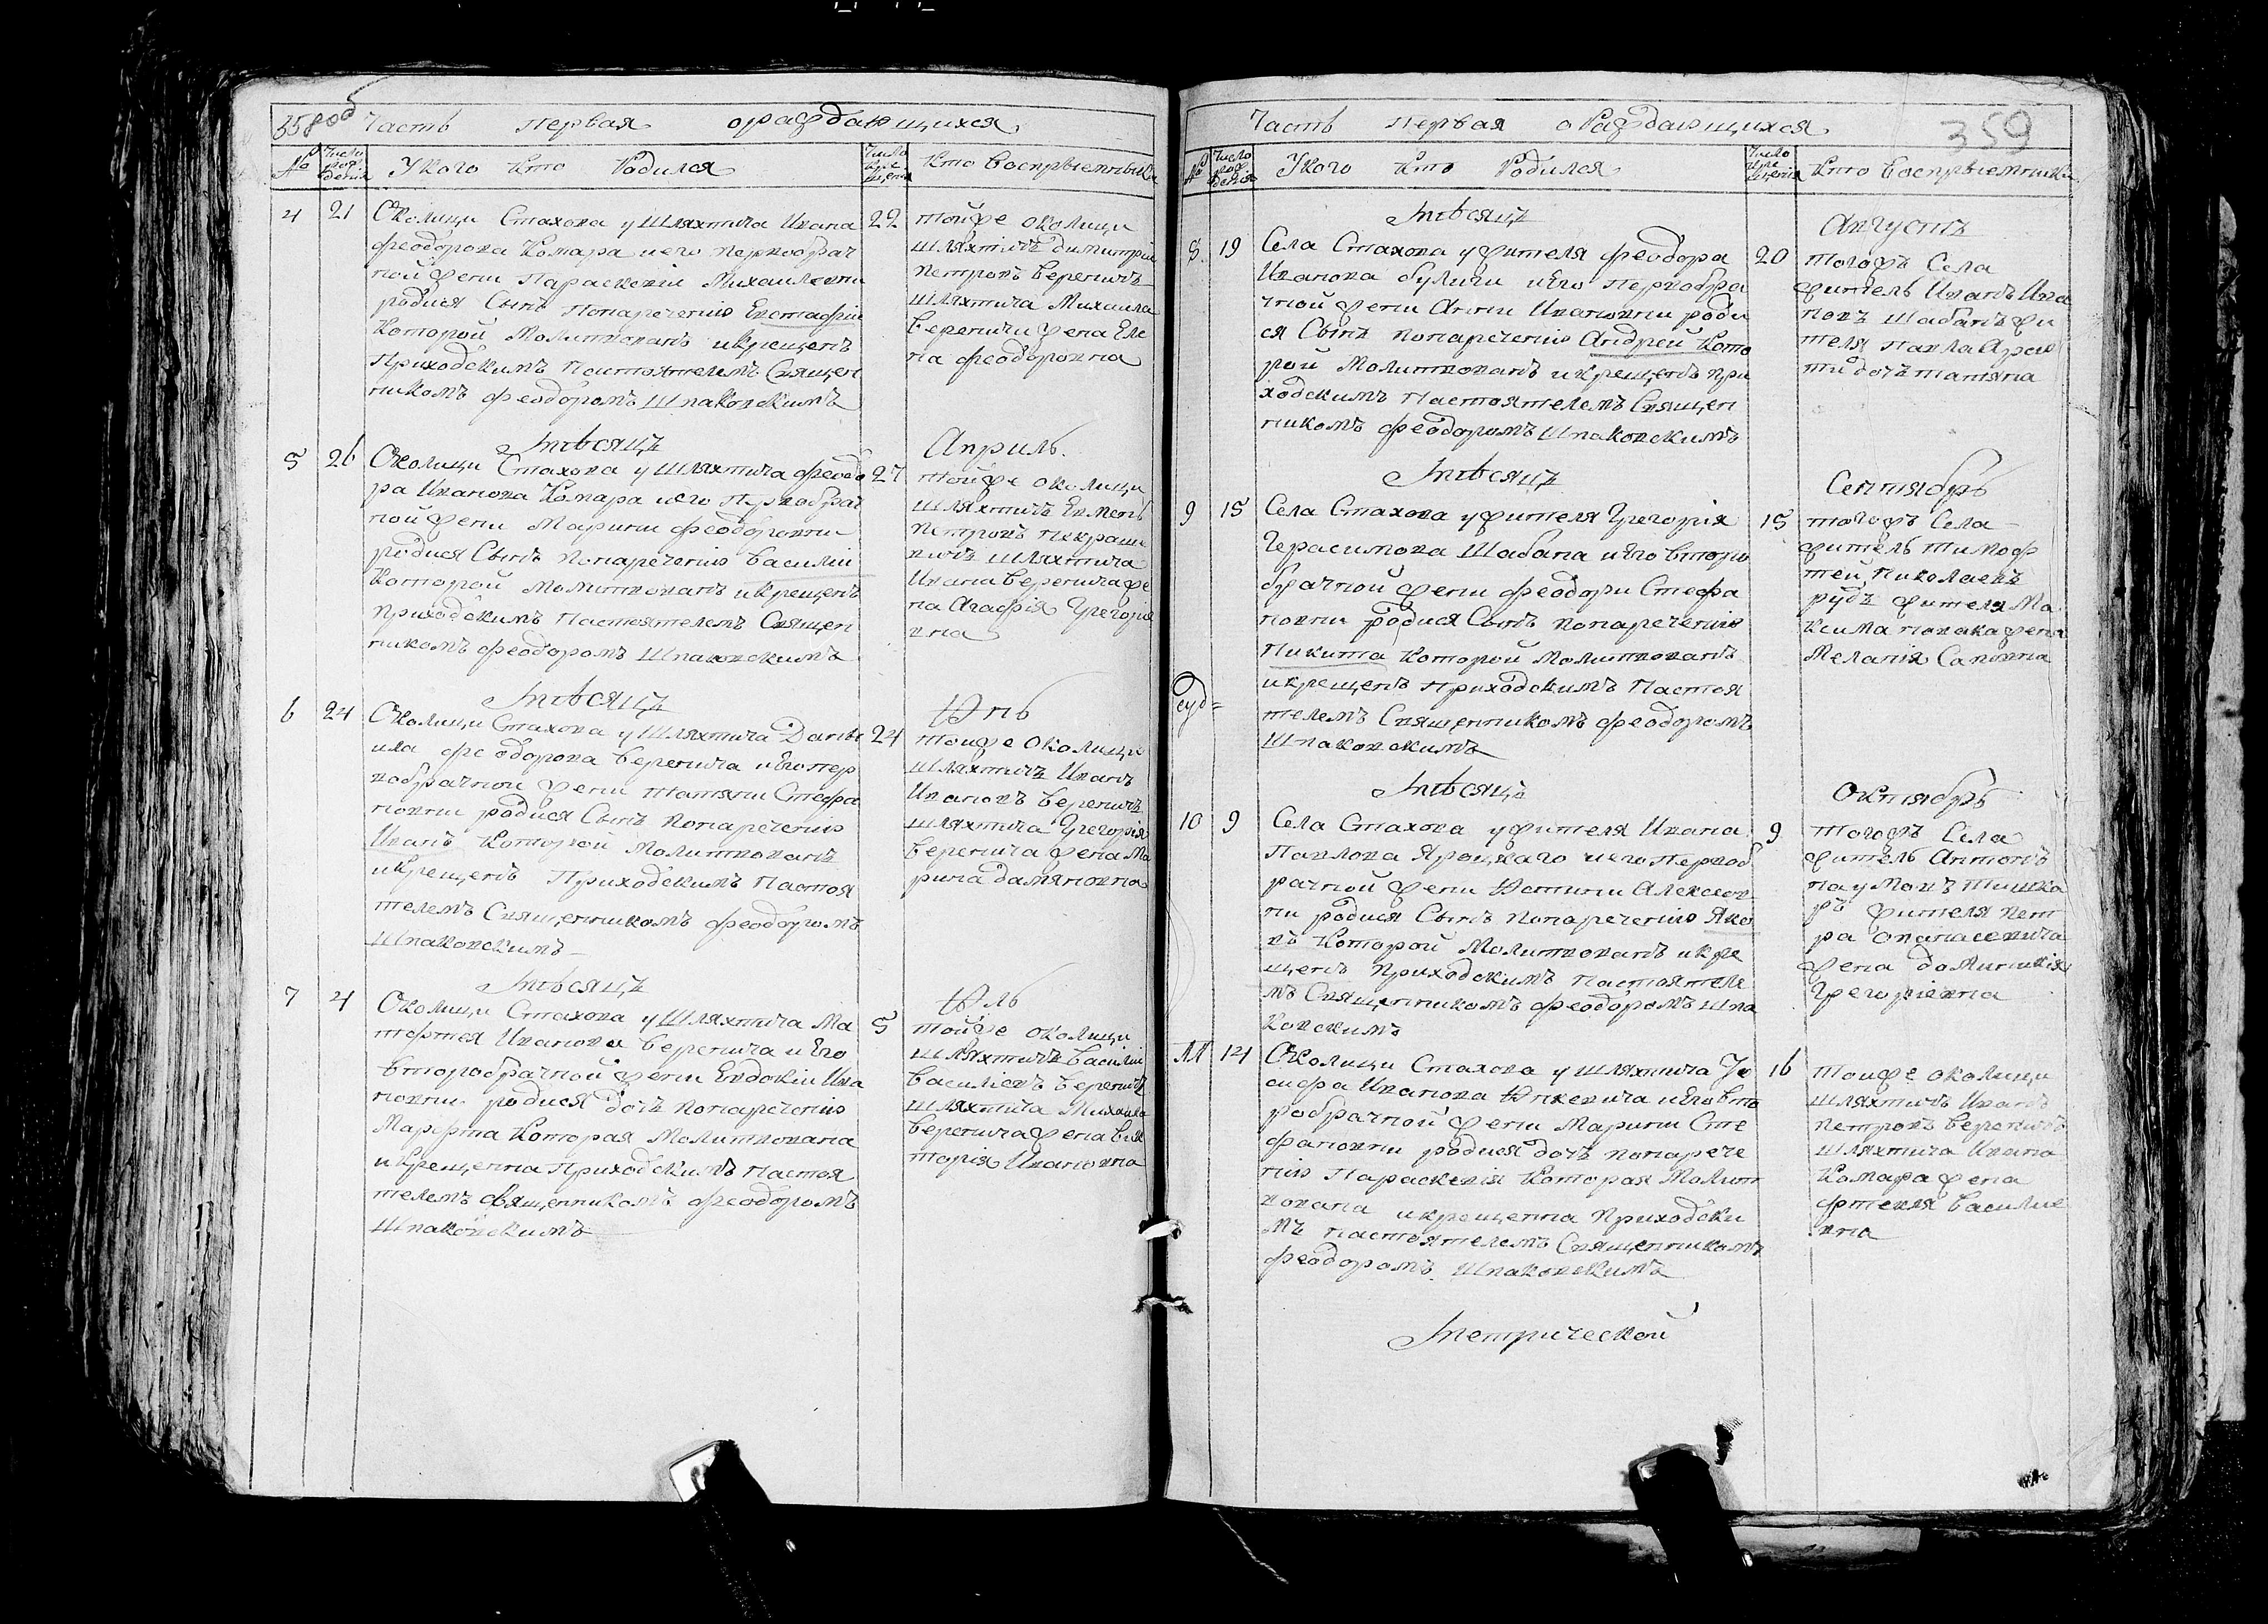 358 об
Часть первая ораждающихся
№
Число рождения
У кого кто Родился
Число крещения
Кто Восприемники
4 21 Околици Стахова у шляхтича Ивана
Феодорова Комара и его первобрач
ной жени Параскевии Михаиловни
родися Сынъ понаречению Евстафий
Которой Молитвованъ и крещенъ
Приходскимъ Настоятелемъ Священ
никомъ Феодоромъ Шпаковскимъ
22 тойже околици
шляхтичъ Димитрий
Петровъ Вереничъ
шляхтича Михаила
Вереничи жена Еле
на Феодоровна
Мѣсяцъ Априль.
5 26 Околици Стахова у шляхтича Феодо
ра Иванова Комара и его Первобрач
ной жени Марини Феодоровни
родися Сынъ Понаречению Василий
Которой Молитвованъ и крещенъ
Приходскимъ Настоятелемъ Священ
никомъ Феодоромъ Шпаковскимъ
27 тойже околици
шляхтичъ Евмень
Петровъ Некраше
вичъ шляхтича
Ивана Веренича же
на Агафия Григорие
вна
Мѣсяцъ Юнь
6 24 Околици Стахова у шляхтича Дани
ила Феодорова Веренича и Его пер
вобрачной жени Татяни Стефа
новни родися Сынъ Понаречению
Иванъ Которой Молитвованъ
и крещенъ Приходскимъ Настоя
телемъ Священникомъ Феодоромъ
Шпаковскимъ
24 тойже околици
шляхтичъ Иванъ
Ивановъ Вереничъ
шляхтича Григория
Веренича жена Ма
рина Дамяновна
Мѣсяцъ Юль
7 4 Околици Стахова у шляхтича Ма
тфтея Иванова Веренича и Его
второбрачной жени Евдокии Ива
новни родися дочъ понаречению
Марфта Которая Молитвована
и крещенна Приходскимъ Настоя
телемъ священникомъ Феодоромъ
Шпаковскимъ
5 тойже околици
шляхтичъ Василий
Василиевъ Веренич
шляхтича Михаила
Веренича жена Вик
тория Ивановна
359
Часть первая ораждающихся
№
Число рождения
У кого кто Родился
Число крещения
Кто Восприемники
Мѣсяцъ Августъ
8. 19 Села Стахова у жителя Феодора
Иванова Булиги и Его первобра
чной жени Анни Ивановни роди
ся Сынъ понаречению Андрей Кото
рой Молитвованъ и крещенъ При
ходскимъ Настоятелемъ Священ
никомъ Феодоромъ Шпаковскимъ
20 тогожъ Села
житель Иванъ Ива
новъ Шабанъ жи
теля Павла
дочъ татяна
Мѣсяцъ Сентябрь
9 15 Села Стахова у жителя Григория
Герасимова Шабана и Его второ
брачной жени Феодори Стефа
новни родися Сынъ понаречению
Никита которой Молитвованъ
и крещенъ Приходскимъ Настоя
телемъ Священникомъ Феодоромъ
Шпаковскимъ
15 тогожъ Села
житель Тимоф
тей Николаевъ
рудъ жителя Ма
ксима новака жена
Мелания Савовна
Мѣсяцъ Октябрь
10 9 Села Стахова у жителя Ивана
Павлова Яроцкаго и его Первоб
рачной жени Юстини Алексеев
ни родися Сынъ понаречению Яко
въ Которой Молитвованъ и кре
щенъ Приходскимъ Настоятеле
мъ Священникомъ Феодоромъ Шпа
ковскимъ
9 тогожъ Села
житель Антонъ
наумовъ Тишке
ръ жителя Пет
ра Опанасевича
жена доминикия
Григориевна
11 14 Околици Стахова у шляхтича Ио
сифа Иванова Юнкевича и Его вто
робрачной жени Марини Сте
фановни родися дочъ понарече
нию Параскевия Которая Молит
вована и крещенна Приходски
мъ настоятелемъ Священникомъ
Феодоромъ Шпаковскимъ
16 тойже околици
шляхтичъ Иванъ
Петровъ Вереничъ
шляхтича Ивана
Комара жена
фтекля Василие
вна
Метрической